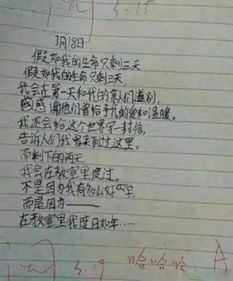 3.15
3月18日
假如我的生命只剩三天
假如我的生命只剩三天
我会在第一天和我的亲人们道别,
感谢他们曾给予我的爱和温暖。
我还会给这个世界写一封信,
告诉人们我曾来到过这里。
而剩下的两天
我会在教室里度过,
不是因为我有多么好学,
而是因为——
在教室里我度日如年……
3.19 哈哈哈 A